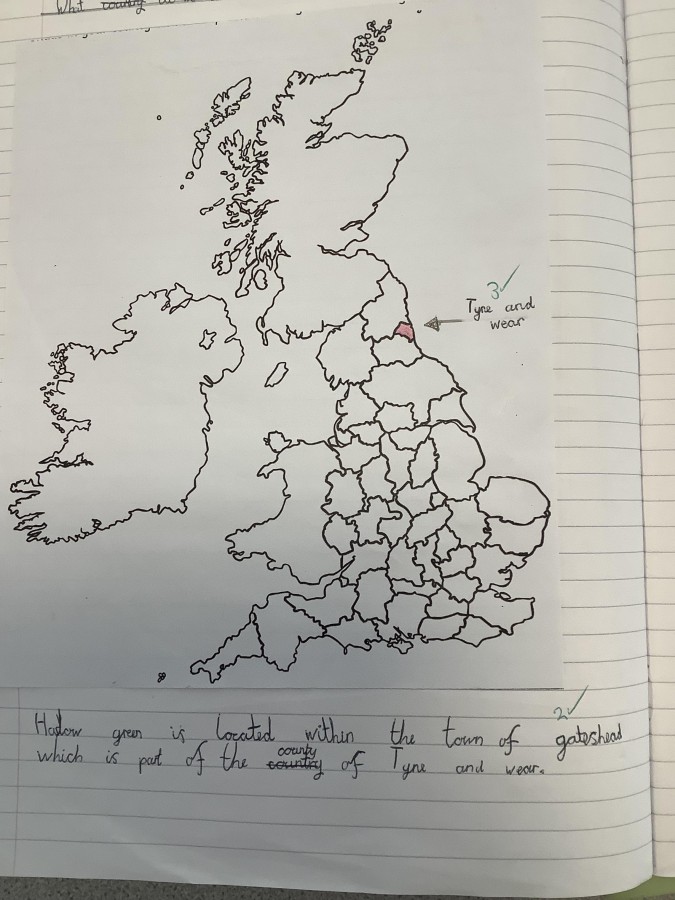 What country
3✓
Tyne and
wear
2✓
Harlow green is located within the town of gateshead
county
which is part of the country of Tyne and wear.